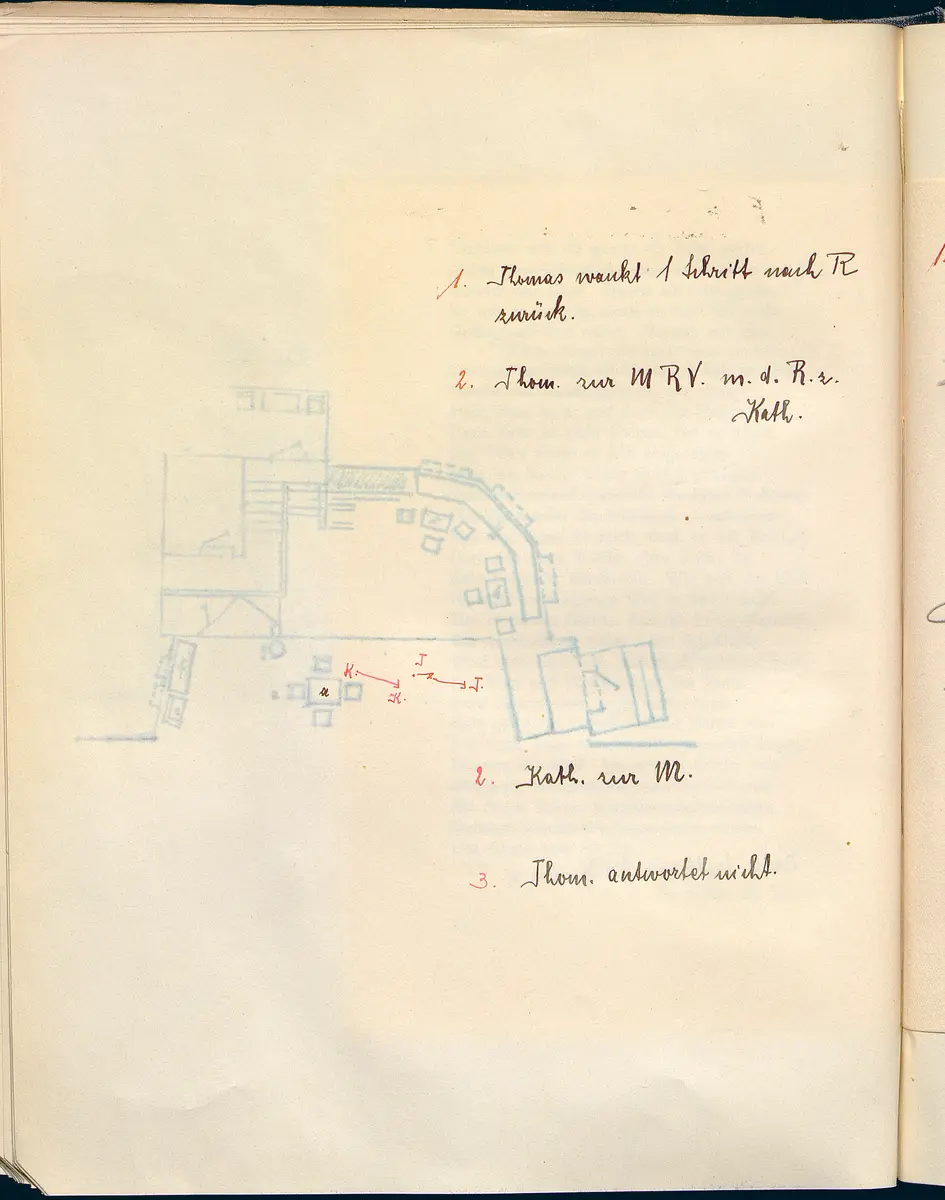 1. Thomas wankt 1 Schritt nach R
zurück.
2. Thom. zur M R V. m. d. R. z.
Kath.
K. T
a K. T.
2. Kath. zur M.
3. Thom. antwortet nicht.